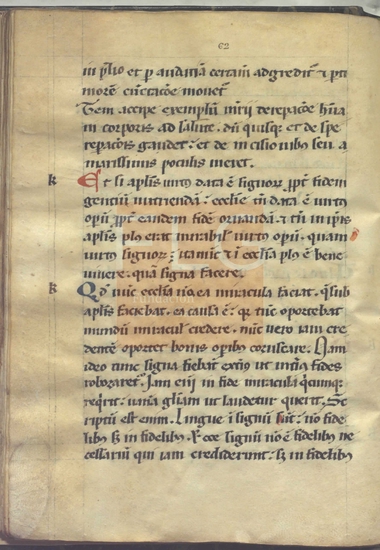 62
in plio et p audaciā certam adgredit' & p ti
morē cunctacōe mouet'
Item accipe exemplū
in corporis ad salutē. dū quisq; et de spe
repacōis gaudet: et de incisionibus seu a
marissimis poculis meret.
k Et si aplis uirtꝰ data ē signoꝝ ppt' fidem
gentiū nutriendā: ecclīe tn̄ data ē uirtꝰ
opū ppt' eandem fidē ornandā. & tn̄ in ipis
aplis plꝰ erat mirabil' uirtꝰ opū. quam
uirtꝰ signoꝝ: & ecclīa plꝰ ē bene
uiuere. quā signa facere.
k Qd nūc ecclīa nō ea miracula faciat. q̄ sub
aplis faciebat. ea causa ē: q' tūc oportebat
mundū miracul' credere. nūc uero iam cre
dentē oportet bonis opibꝰ coruscare. Nam
ideo tunc signa fiebāt extiꝰ ut intꝰ fides
roboraret'. Iam enī in fide miracula
reqirit: uanā gl'iam ut laudetur querit. Sc
riptū est enim. Lingue i signū sūt: nō fide
libꝰ sꝫ in fidelibꝰ. Ecce signū nō ē fidelibꝰ ne
cessariū qui iam crediderunt: sꝫ in fidelibꝰ